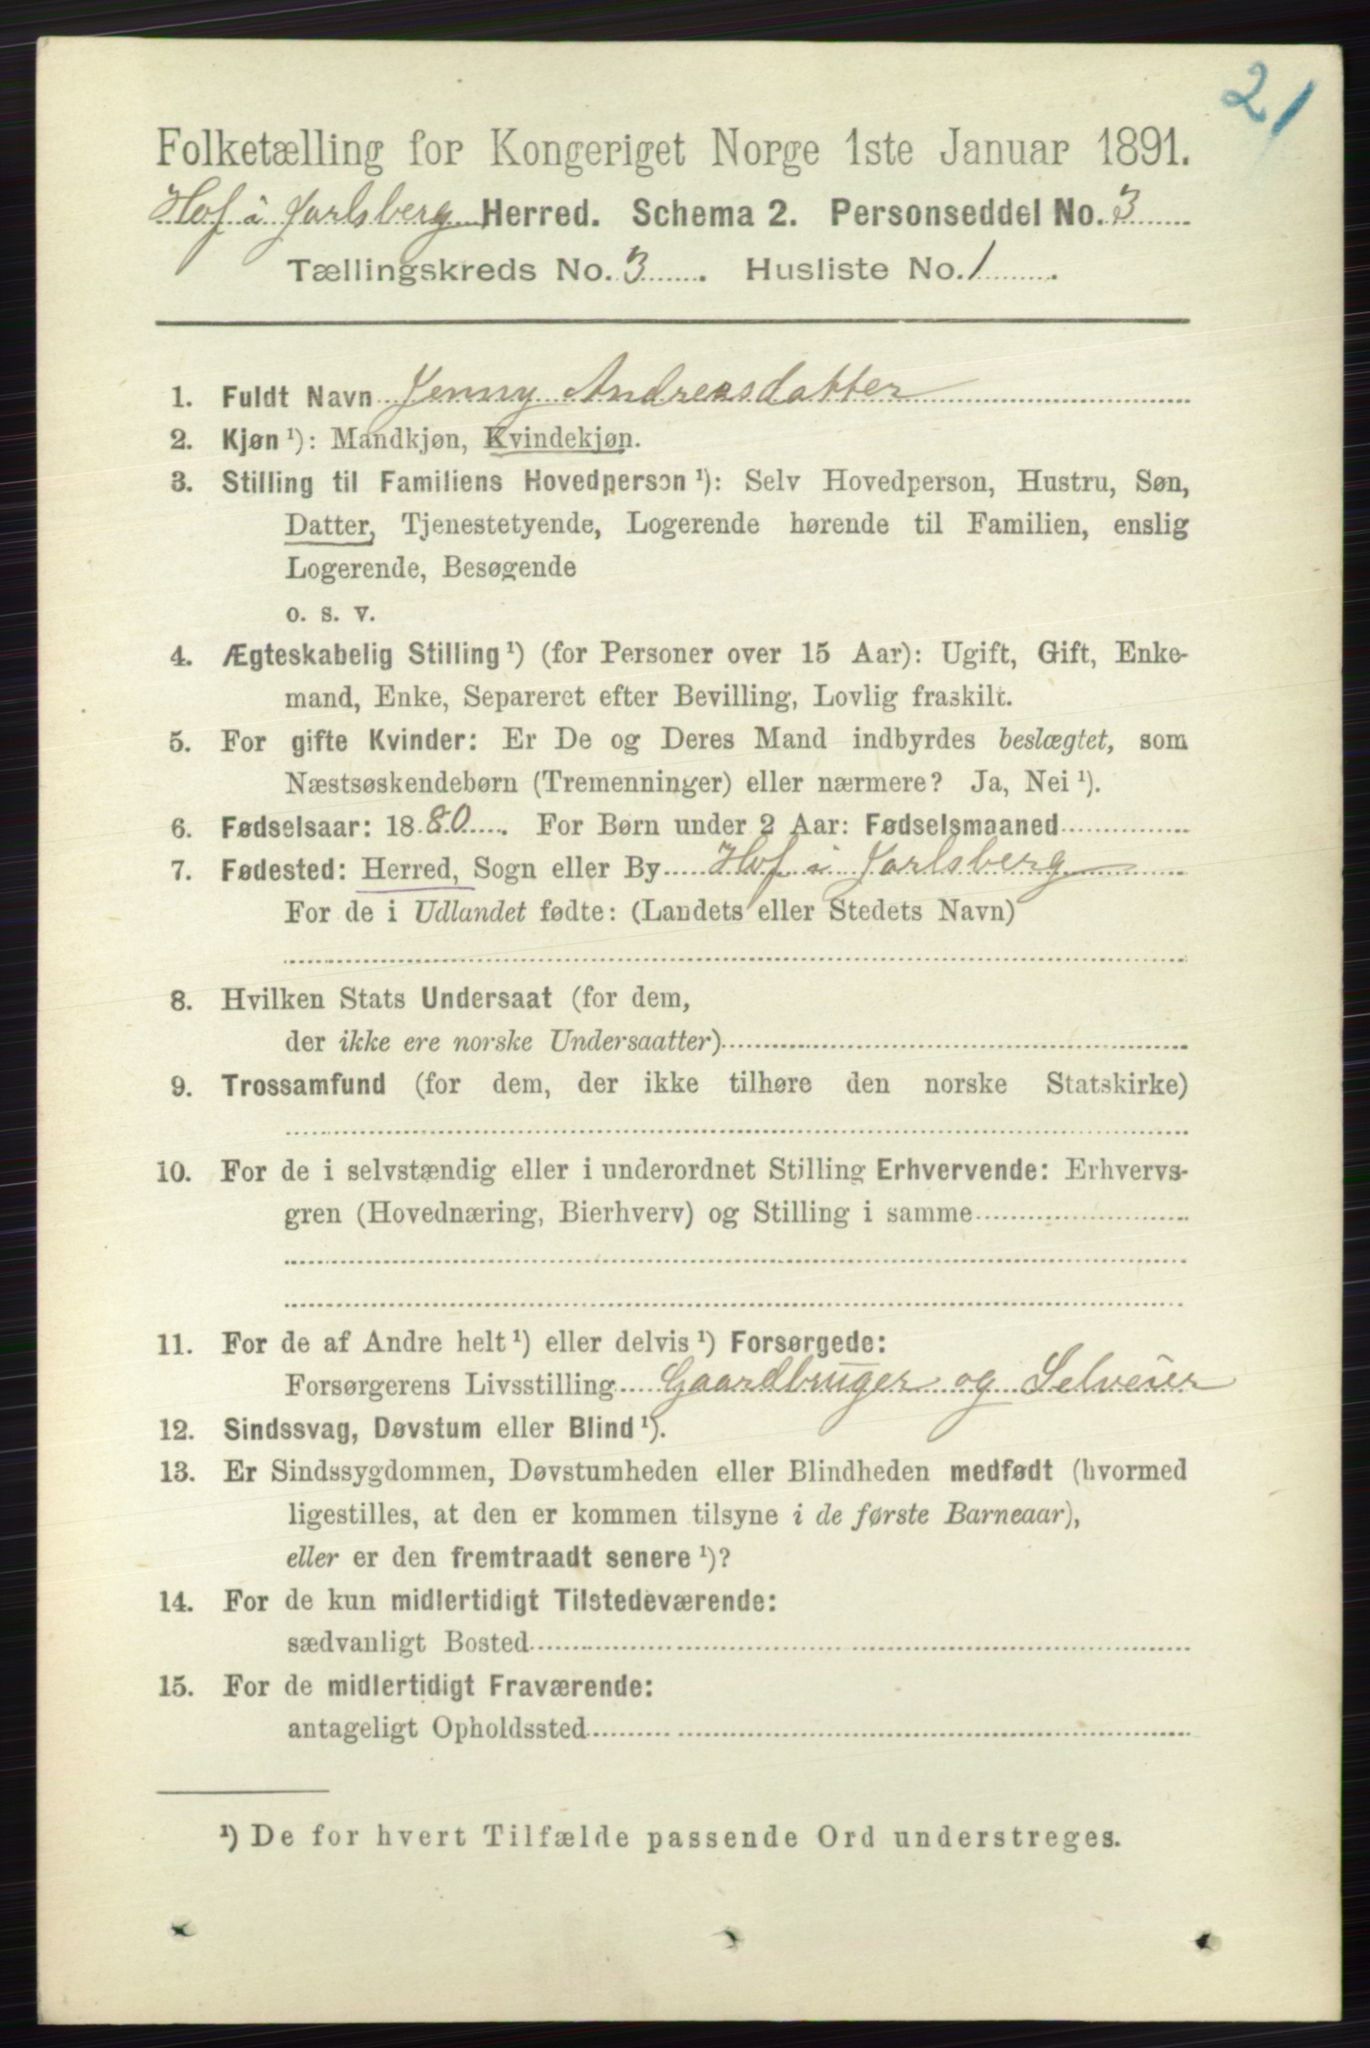 21
Folketælling for Kongeriget Norge 1ste Januar 1891.
Hof i Jarlsberg Herred. Schema 2. Personseddel No. 3
Tællingskreds No. 3. Husliste No. 1.
1. Fuldt Navn Jenny Andreasdatter
2. Kjøn ¹): Mandkjøn, Kvindekjøn.
3. Stilling til Familiens Hovedperson ¹): Selv Hovedperson, Hustru, Søn,
Datter, Tjenestetyende, Logerende hørende til Familien, enslig
Logerende, Besøgende
o. s. v.
4. Ægteskabelig Stilling ¹) (for Personer over 15 Aar): Ugift, Gift, Enke-
mand, Enke, Separeret efter Bevilling, Lovlig fraskilt.
5. For gifte Kvinder: Er De og Deres Mand indbyrdes beslægtet, som
Næstsøskendebørn (Tremenninger) eller nærmere? Ja, Nei ¹).
6. Fødselsaar: 1880. For Børn under 2 Aar: Fødselsmaaned
7. Fødested: Herred, Sogn eller By Hof i Jarlsberg
For de i Udlandet fødte: (Landets eller Stedets Navn)
8. Hvilken Stats Undersaat (for dem,
der ikke ere norske Undersaatter)
9. Trossamfund (for dem, der ikke tilhøre den norske Statskirke)
10. For de i selvstændig eller i underordnet Stilling Erhvervende: Erhvervs-
gren (Hovednæring, Bierhverv) og Stilling i samme
11. For de af Andre helt ¹) eller delvis ¹) Forsørgede:
Forsørgerens Livsstilling Gaardbruger og Selveier
12. Sindssvag, Døvstum eller Blind ¹).
13. Er Sindssygdommen, Døvstumheden eller Blindheden medfødt (hvormed
ligestilles, at den er kommen tilsyne i de første Barneaar),
eller er den fremtraadt senere ¹)?
14. For de kun midlertidigt Tilstedeværende:
sædvanligt Bosted
15. For de midlertidigt Fraværende:
antageligt Opholdssted
¹) De for hvert Tilfælde passende Ord understreges.